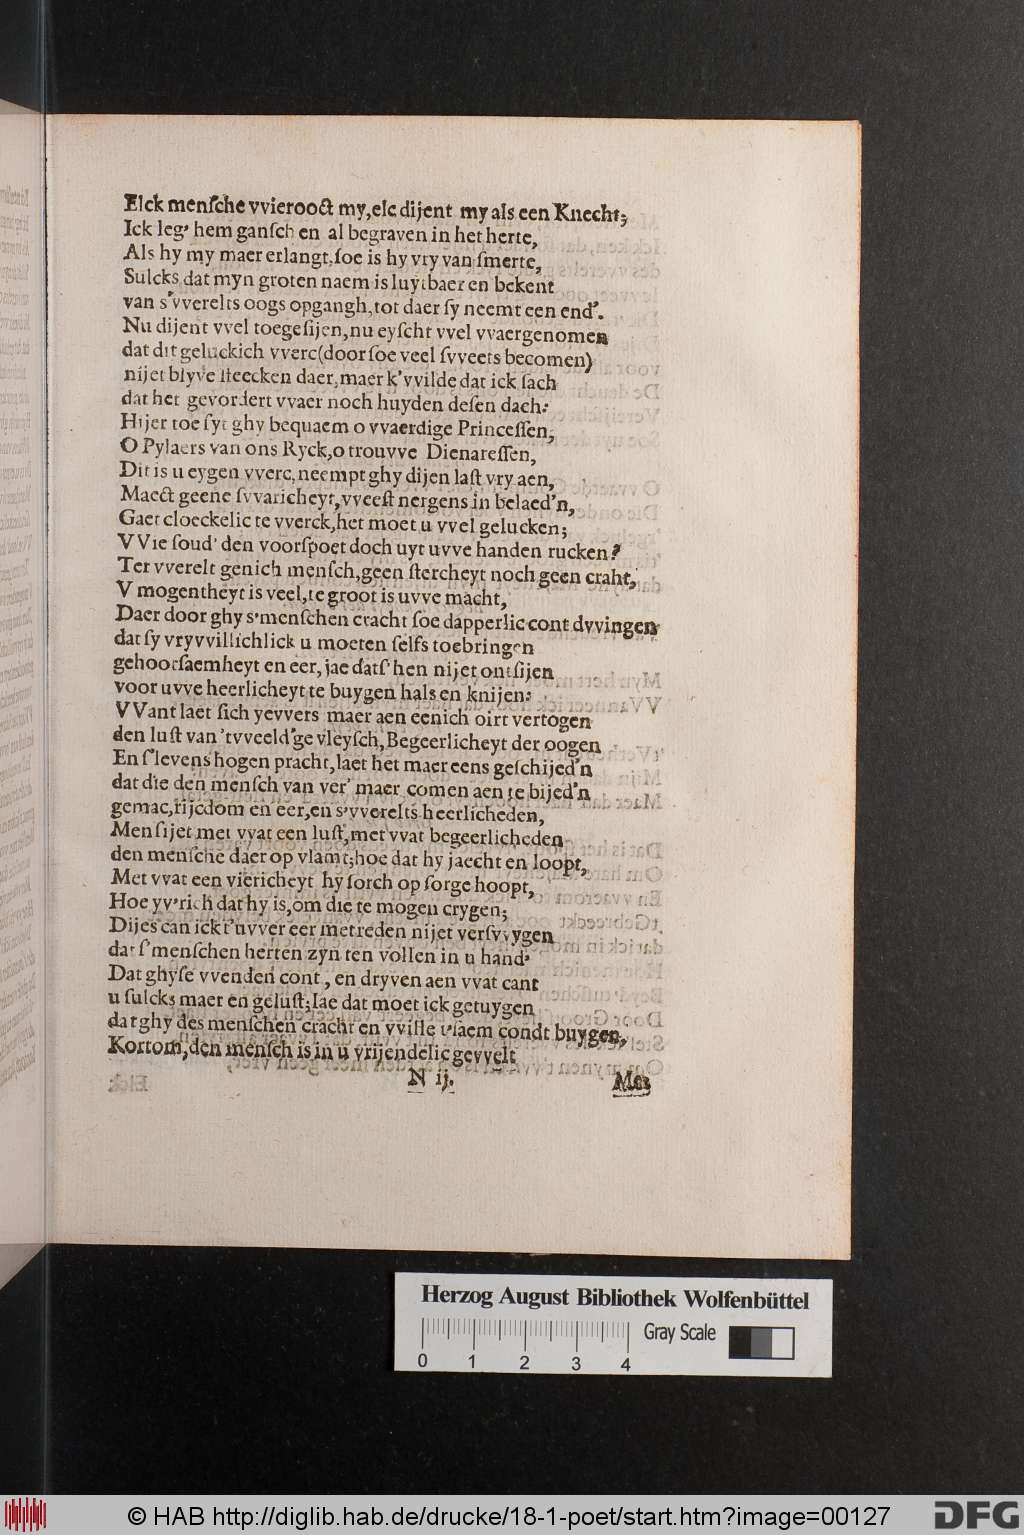 Elck menſche vvierooct my, elc dijent my als een Knecht;
Ick leg' hem ganſch en al begraven in het herte,
Als hy my maer erlangt, ſoe is hy vry van ſmerte,
Sulcks dat myn groten naem is luytbaer en bekent
van s'vverelts oogs opgangh, tot daer ſy neemt een end'.
Nu dijent vvel toegeſijen, nu eyſcht vvel vvaergenomen
dat dit geluckich vverc (door ſoe veel ſvveets becomen)
nijet blyve ſteecken daer, maer k'vvilde dat ick ſach
dat het gevordert vvaer noch huyden deſen dach:
Hijer toe ſyt ghy bequaem o vvaerdige Princeſſen,
O Pylaers van ons Ryck, o trouvve Dienareſſen,
Dit is u eygen vverc, neempt ghy dijen laſt vry aen,
Maect geene ſvvaricheyt, vveeſt nergens in belaed'n,
Gaet cloeckelic te vverck, het moet u vvel gelucken;
VVie ſoud' den voorſpoet doch uyt uvve handen rucken?
Ter vverelt genich menſch, geen ſtercheyt noch geen craht,
V mogentheyt is veel, te groot is uvve macht,
Daer door ghy s'menſchen cracht ſoe dapperlic cont dvvingen
dat ſy vryvvillichlick u moeten ſelfs toebringen
gehoorſaemheyt en eer, jae datſ' hen nijet ontſijen
voor uvve heerlicheyt te buygen hals en knijen:
VVant laet ſich yevvers maer aen eenich oirt vertogen
den luſt van 'tvveeld'ge vleyſch, Begeerlicheyt der oogen
En ſ'levens hogen pracht, laet het maer eens geſchijed'n
dat die den menſch van ver' maer comen aen te bijed'n
gemac, rijcdom en eer, en s'vverelts heerlicheden,
Men ſijet met vvat een luſt, met vvat begeerlicheden
den menſche daer op vlamt; hoe dat hy jaecht en loopt,
Met vvat een viericheyt hy ſorch op ſorge hoopt,
Hoe yv'rich dat hy is, om die te mogen crygen;
Dijes can ick t'uvver eer met reden nijet verſvvygen
dat ſ'menſchen herten zyn ten vollen in u hand'
Dat ghyſe vvenden cont, en dryven aen vvat cant
u ſulcks maer en geluſt; Iae dat moet ick getuygen
dat ghy des menſchen cracht en vville t'ſaem condt buygen,
Kortom, den menſch is in u vrijendelic gevvelt
N ij.
Me
Herzog August Bibliothek Wolfenbüttel
Gray Scale
0 1 2 3 4
© HAB http://diglib.hab.de/drucke/18-1-poet/start.htm?image=00127
DFG